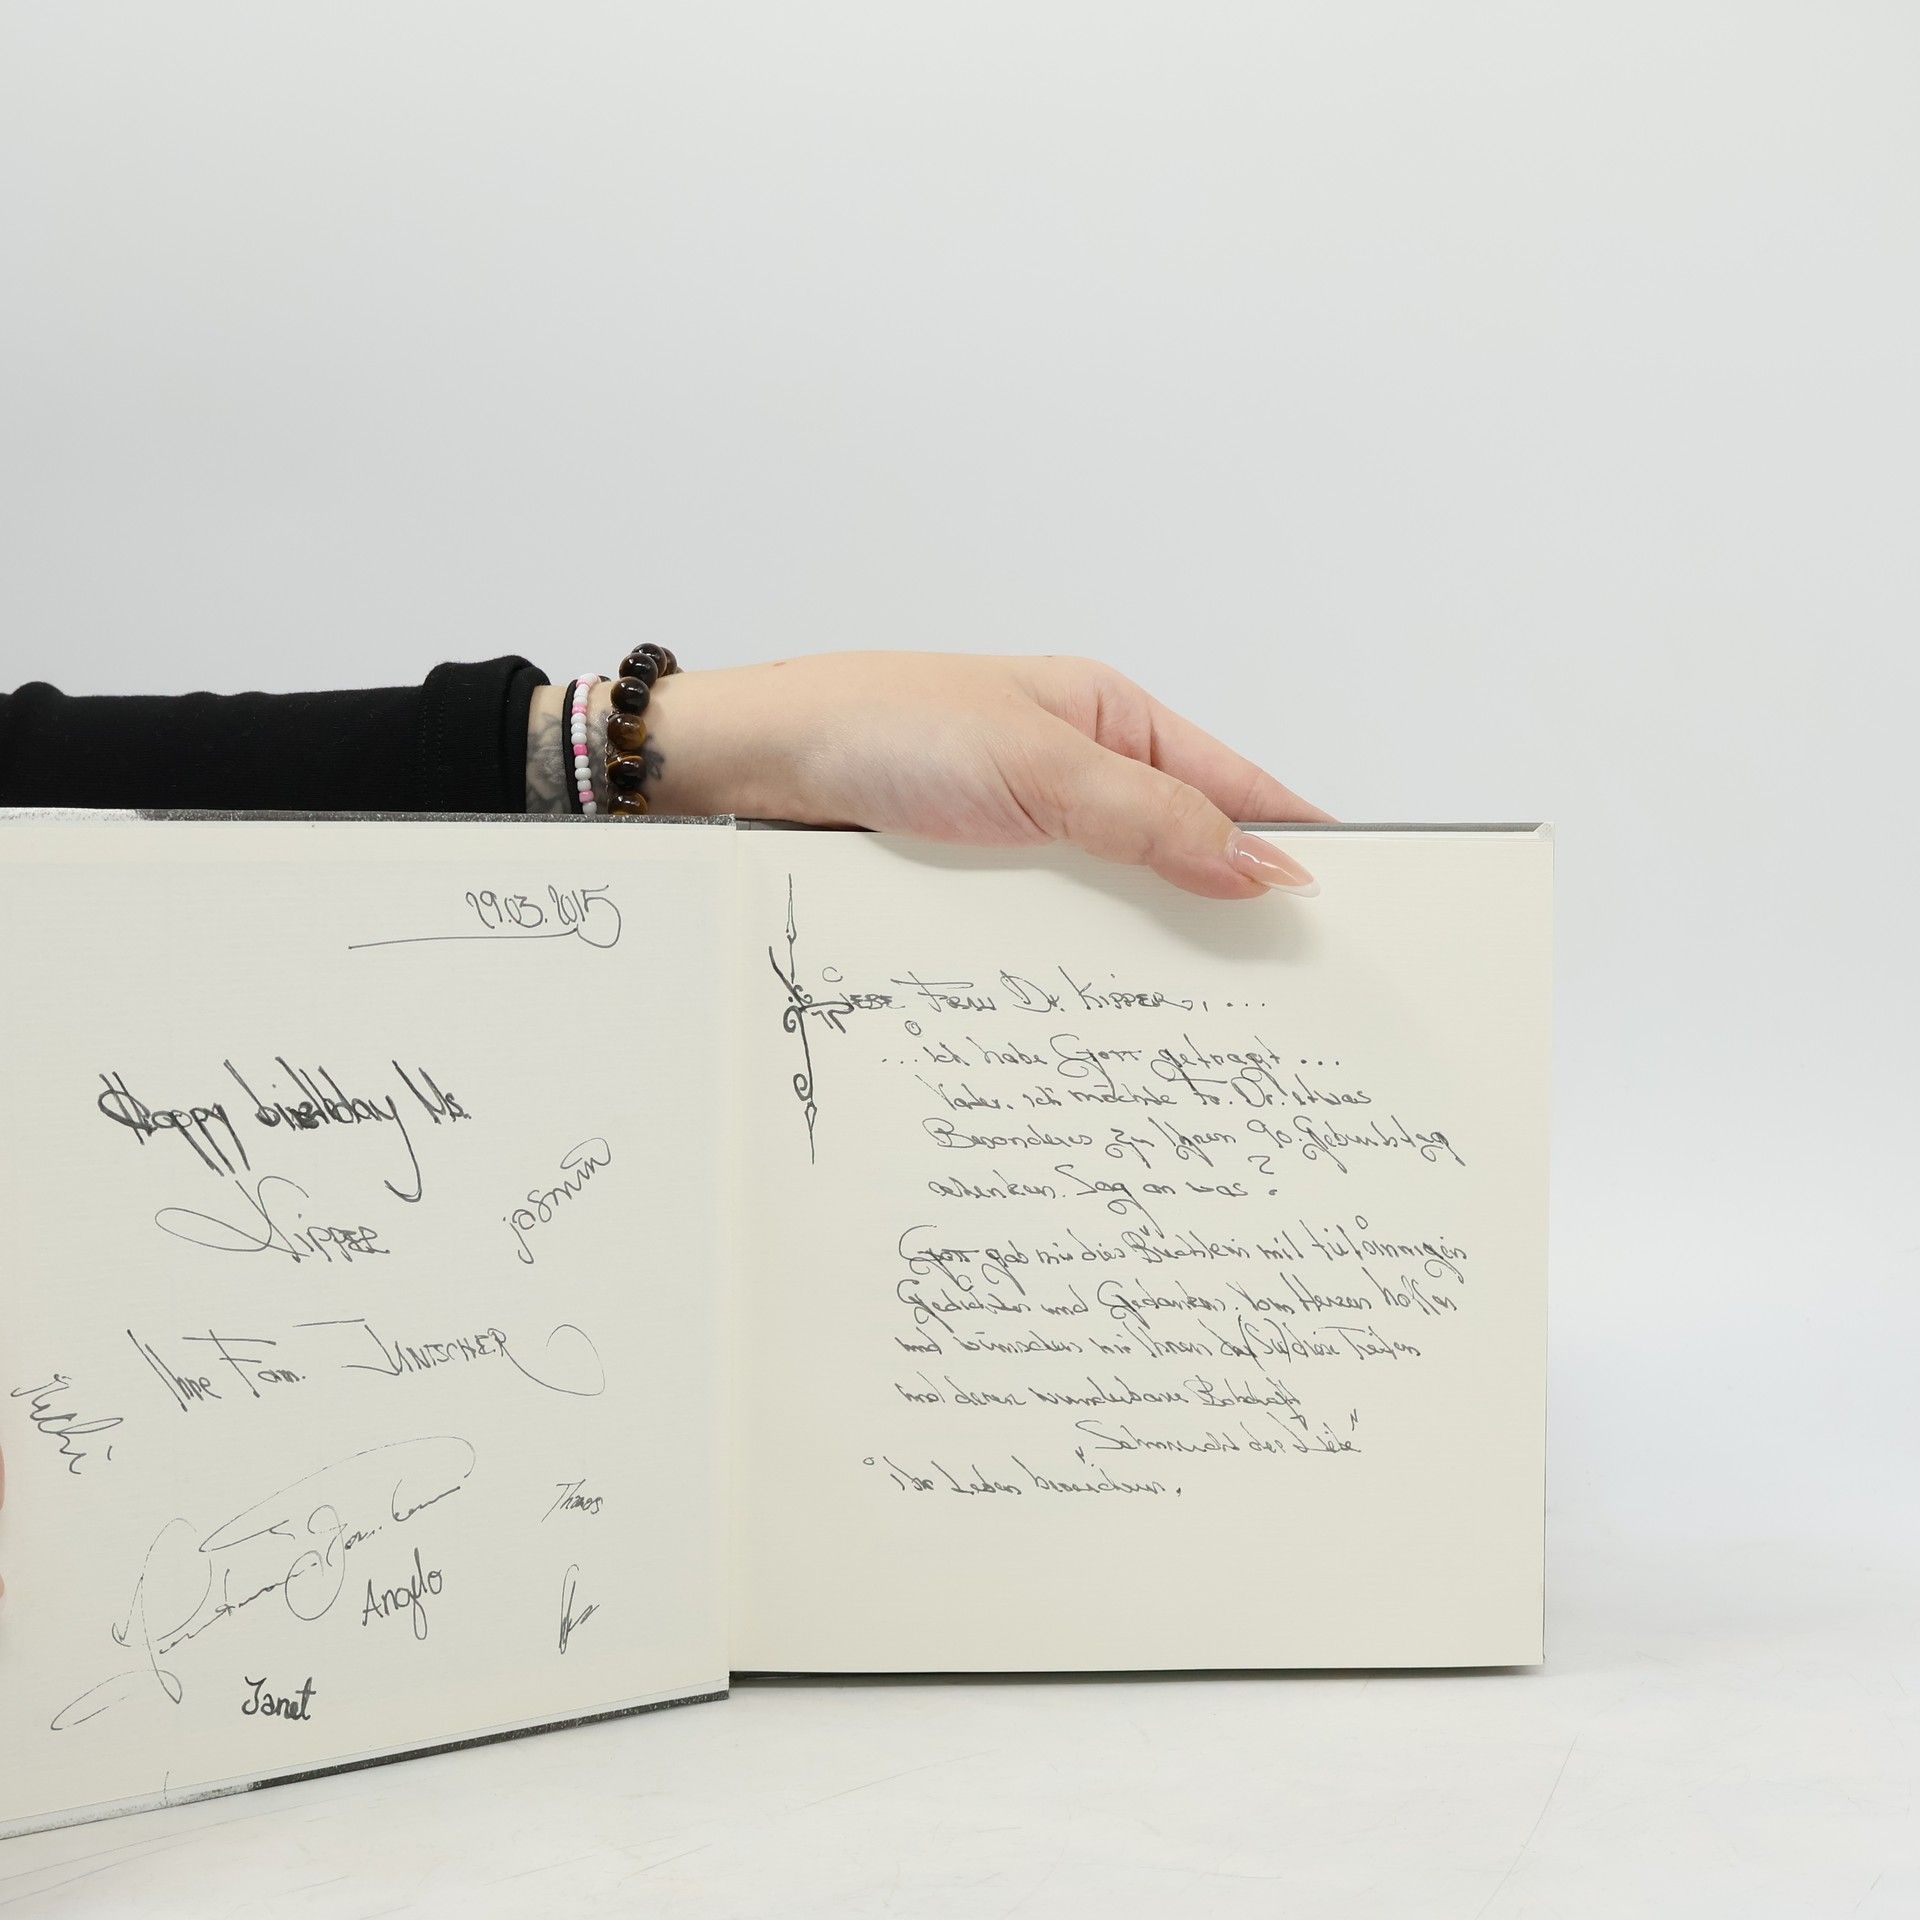 29.03.2015
Happy birthday Ms.
Kipper
jasmin
Ihre Fam. JUNTSCHER
Thanos
Angelo
Janet
Liebe Frau Dr. Kipper, ...
... ich habe Gott gefragt ...
Vater, ich möchte Fr. Dr. etwas
Besonderes zu Ihren 90. Geburtstag
schenken. Sag an was?
Gott gab mir dies Büchlein mit tiefsinnigen
Gedichten und Gedanken. Vom Herzen hoffen
und wünschen wir Ihnen daß Sie diese Tiefen
und deren wunderbare Botschaft
„Sehnsucht der Liebe"
ihr Leben bereichern.